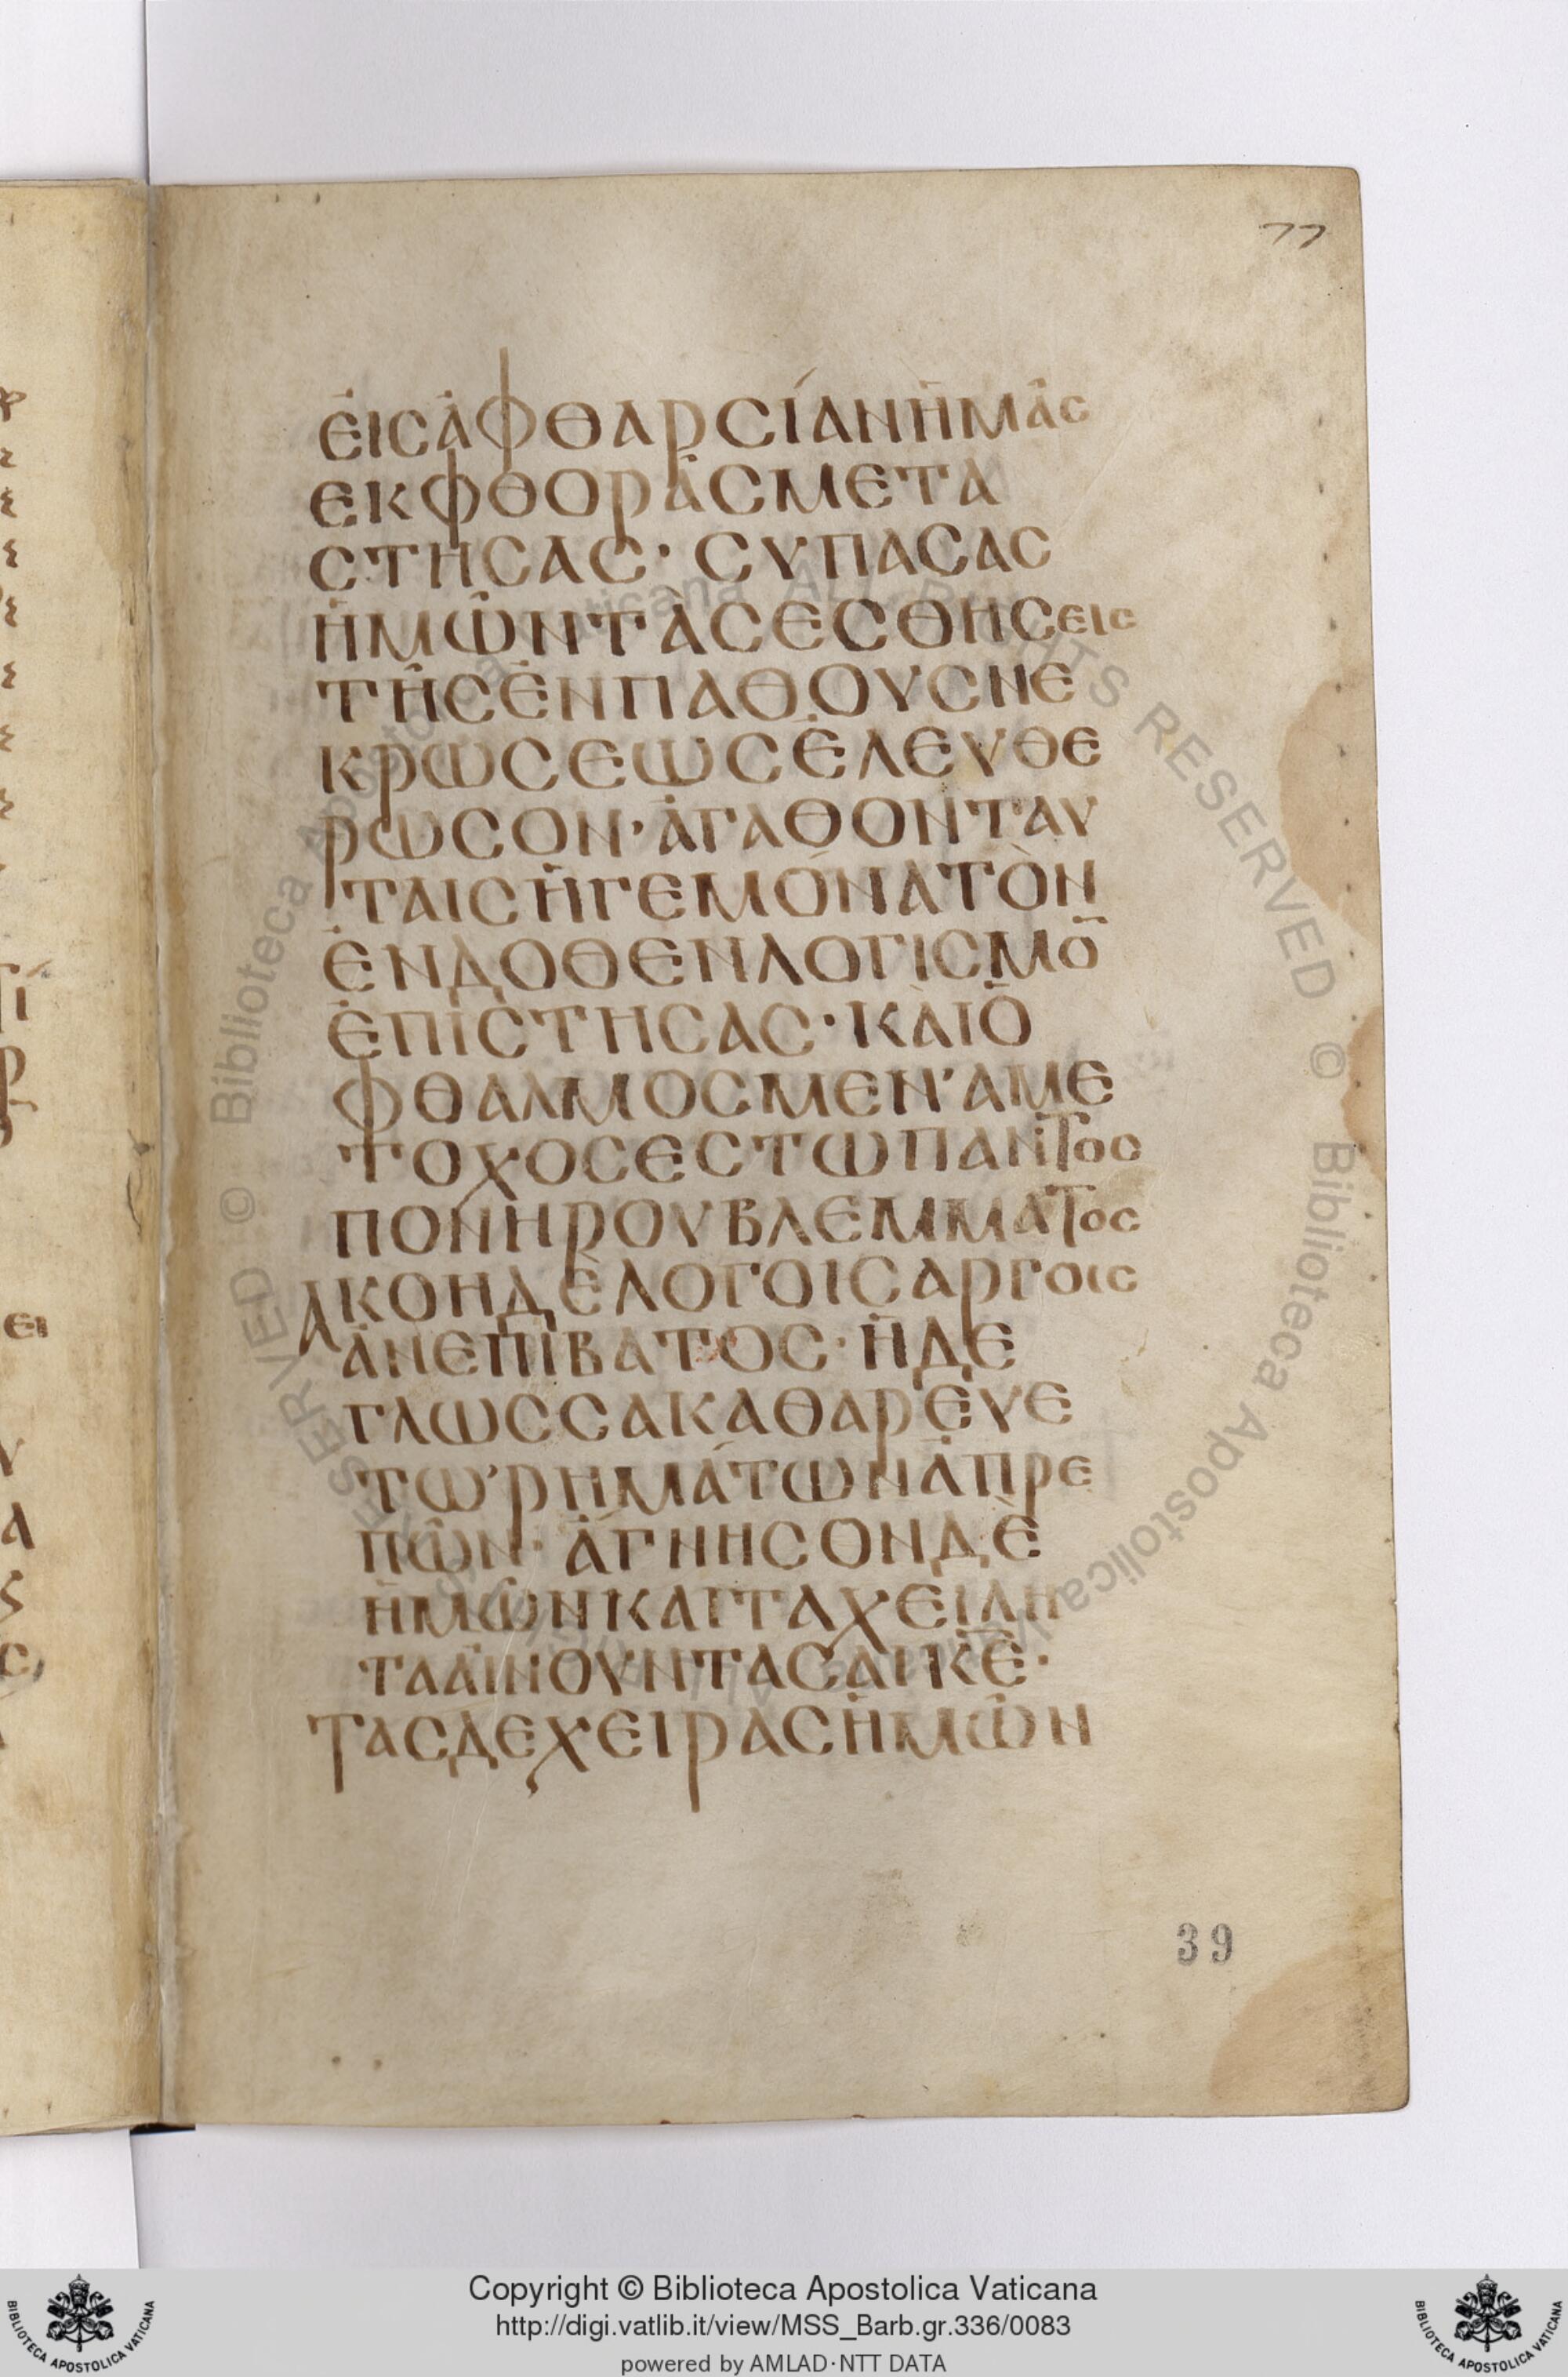 77
ἐιςἀφθαρςίανἡμᾶς
εκφθορᾶςμετα
στηςας· ςυπαςας
ἡμῶντὰςεςθηςεις
τῆςἐνπαθουςνε
κρωςεωςἐλευθε
ρωςον· ἀγαθονταυ
ταιςἡγεμόνατὸν
ἐνδοθενλογιςμο̄
ἐπιςτηςας· κὰιὁ
φθαλμοςμεν’αμε
τοχοςεςτωπαντος
πονηρουβλεμματος
ακοηδὲλογοιςαργοις
ἀνεπίβατος· ἡδε
γλωςςακαθαρευε
τω’ρημάτωνἀπρε
πῶν· ἅγνηςονδὲ
ἡμῶνκαιταχειλη
τααἰνουντας̀αικ̄ε̄·
ταςδεχειραςἡμῶν
39
ει
Copyright © Biblioteca Apostolica Vaticana
http://digi.vatlib.it/view/MSS_Barb.gr.336/0083
powered by AMLAD·NTT DATA
BIBLIOTECA APOSTOLICA VATICANA
BIBLIOTECA APOSTOLICA VATICANA